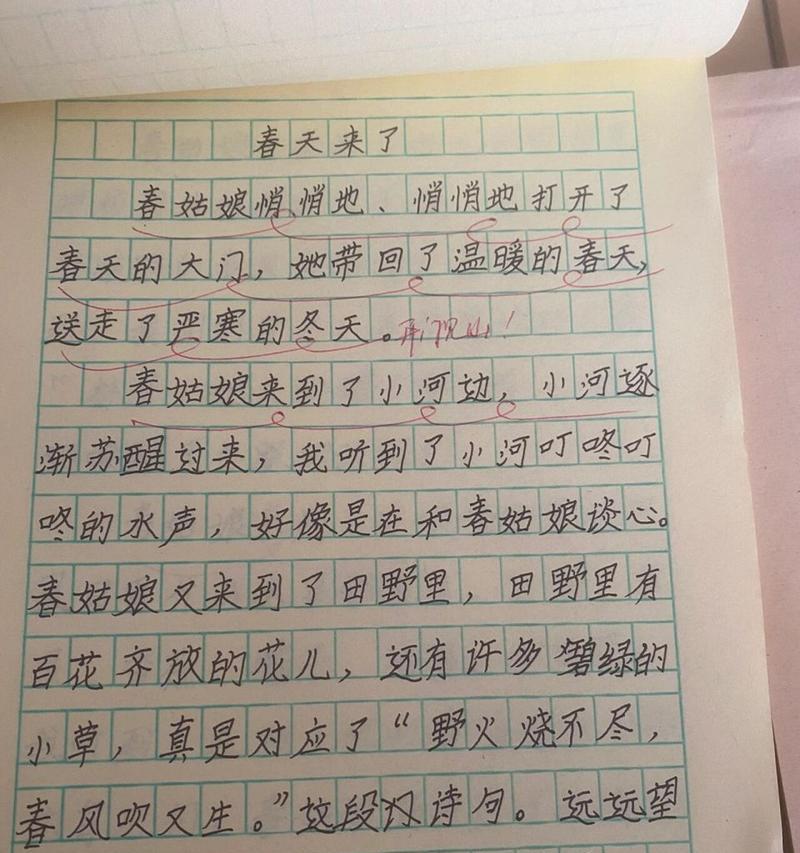 春天来了
春姑娘悄悄地、悄悄地打开了
春天的大门，她带回了温暖的春天，
送走了严寒的冬天。
春姑娘来到了小河边，小河逐
渐苏醒过来，我听到了小河叮咚叮
咚的水声，好像是在和春姑娘谈心。
春姑娘又来到了田野里，田野里有
百花齐放的花儿，还有许多碧绿的
小草，真是对应了“野火烧不尽，
春风吹又生。”这段诗句。远远望